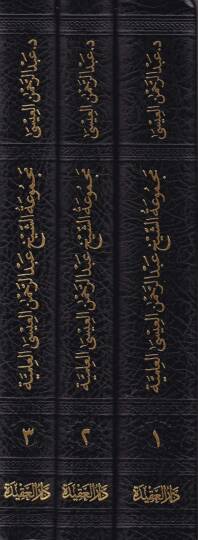 د. عبد الرحمن العيسى
مجموعة الشيخ عبد الرحمن العيسى العلمية
١
دار العقيدة
د. عبد الرحمن العيسى
مجموعة الشيخ عبد الرحمن العيسى العلمية
٢
دار العقيدة
د. عبد الرحمن العيسى
مجموعة الشيخ عبد الرحمن العيسى العلمية
٣
دار العقيدة